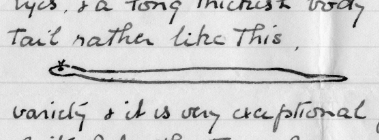 eyes, & a long thickish body
tail rather like this,
variety & it is very exceptional